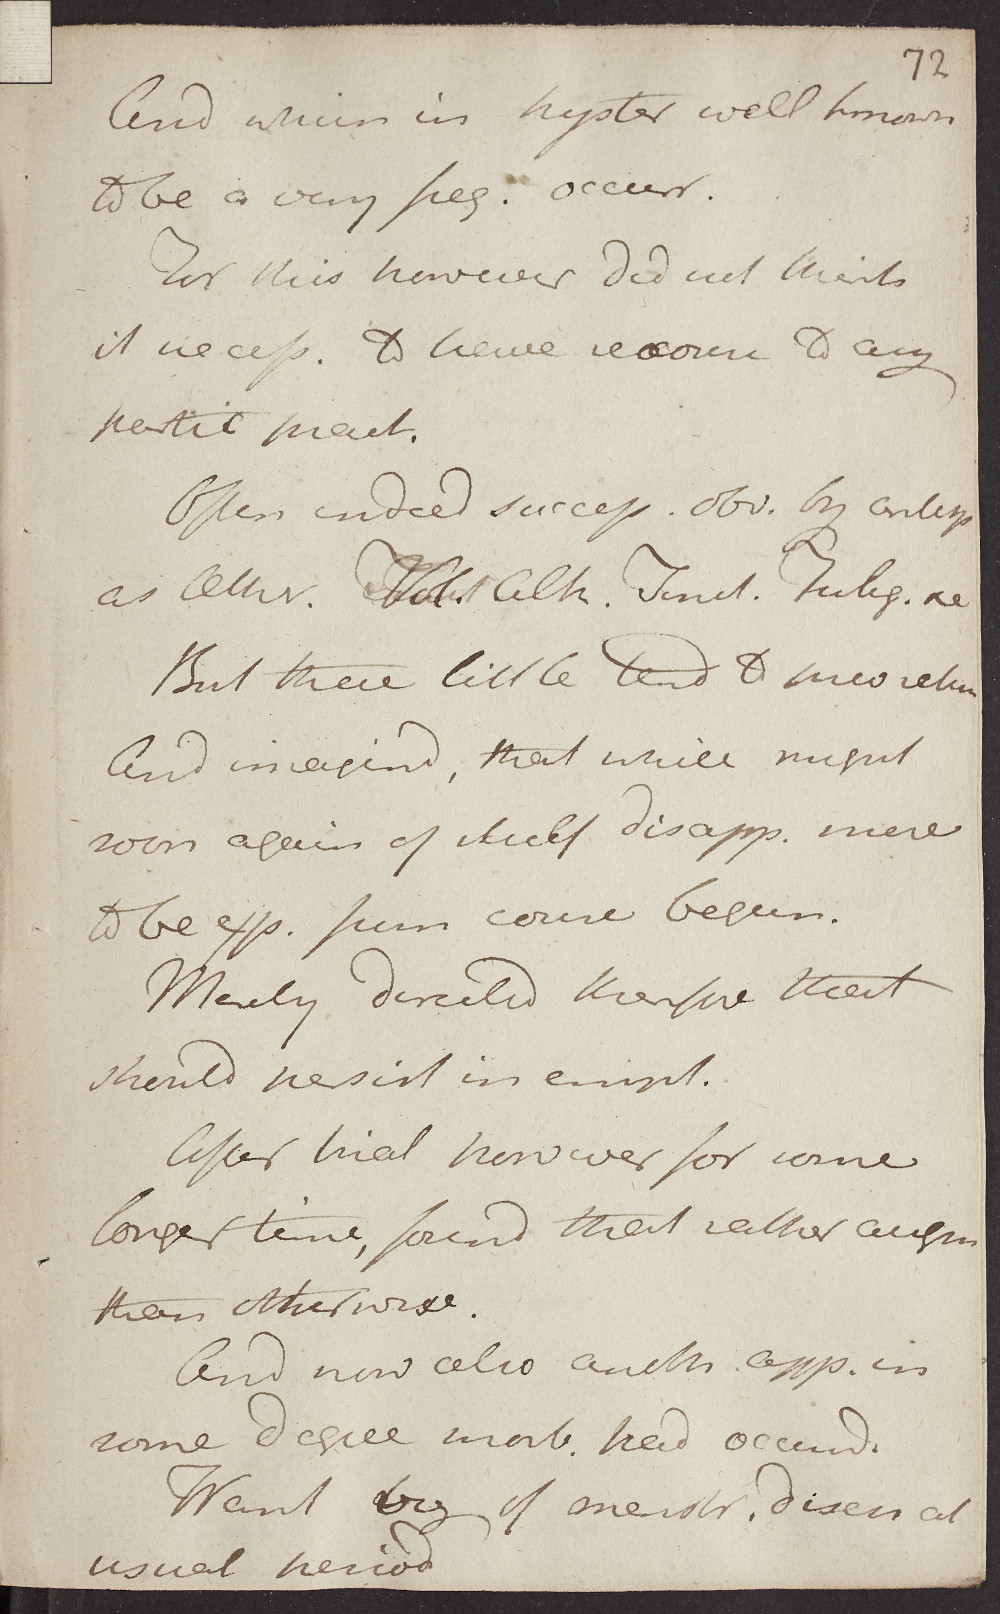 72
And which in hyster well known
to be a very freq. occurr.
For this however did not think
it necess. to have recourse to any
partic pract.
Often indeed success. obv. by antisp
as Æther. Vol. Alk. Tinct. Fulig. &c
But there little tend to prevo return
And imagind, that while might
soon again of itself disapp. more
to be exp. from course begun.
Merely directed therefore that
should persist in empl.
After trial however for some
longer time, found that rather augm
than otherwise.
And now also anoth app. in
some degree morb. had occurrd.
Want of menstr. disch at
usual period